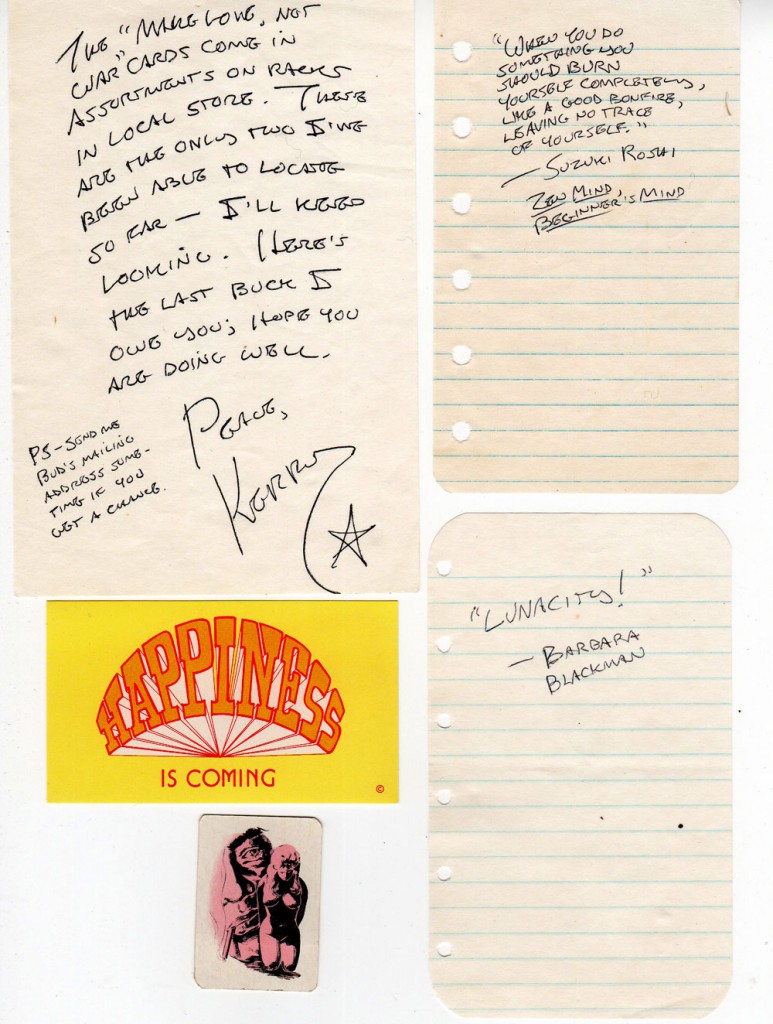 THE "MAKE LOVE, NOT
WAR" CARDS COME IN
ASSORTMENTS ON RACKS
IN LOCAL STORE. THESE
ARE THE ONLY TWO I'VE
BEEN ABLE TO LOCATE
SO FAR — I'LL KEEP
LOOKING. HERE'S
THE LAST BUCK I
OWE YOU; HOPE YOU
ARE DOING WELL.
PEACE,
KERRY
PS-SEND ME
BUD'S MAILING
ADDRESS SOME-
TIME IF YOU
GET A CHANCE.
"WHEN YOU DO
SOMETHING YOU
SHOULD BURN
YOURSELF COMPLETELY,
LIKE A GOOD BONFIRE,
LEAVING NO TRACE
OF YOURSELF."
— SUZUKI ROSHI
ZEN MIND,
BEGINNER'S MIND
"LUNACITY!"
— BARBARA
BLACKMAN
HAPPINESS
IS COMING
©